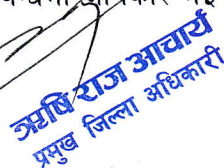 ऋषि राज आचार्य
प्रमुख जिल्ला अधिकारी